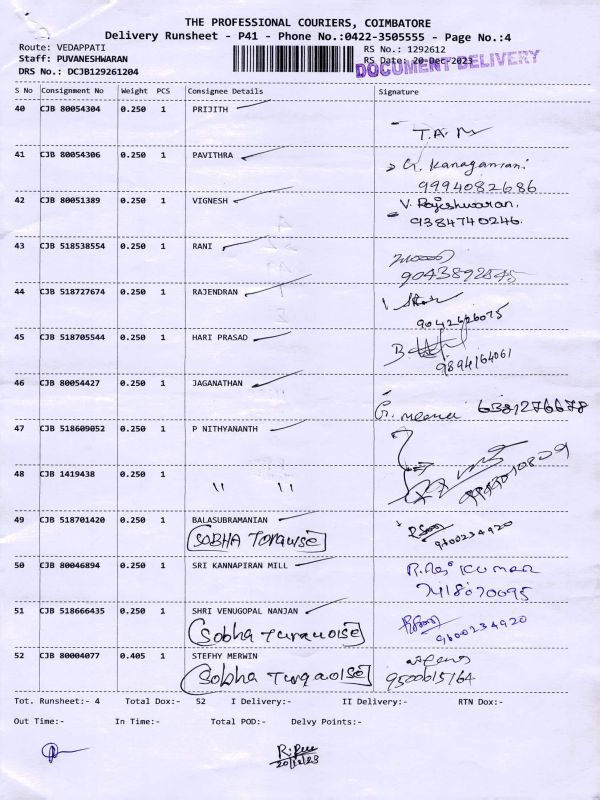 THE PROFESSIONAL COURIERS, COIMBATORE
Delivery Runsheet - P41 - Phone No.:0422-3505555 - Page No.:4
Route: VEDAPPATI
RS No.: 1292612
Staff: PUVANESHWARAN
RS Date: 20-Dec-2023
DOCUMENT DELIVERY
DRS No.: DCJB129261204
S No Consignment No Weight PCS Consignee Details Signature
40 CJB 80054304 0.250 1 PRIJITH
T.A.
41 CJB 80054306 0.250 1 PAVITHRA
G. Kanagamani
9994082686
42 CJB 80051389 0.250 1 VIGNESH
V. Rajeshwaran.
9384740246.
43 CJB 518538554 0.250 1 RANI
44 CJB 518727674 0.250 1 RAJENDRAN
45 CJB 518705544 0.250 1 HARI PRASAD
9894164061
46 CJB 80054427 0.250 1 JAGANATHAN
G. Meena 6381276678
47 CJB 518609052 0.250 1 P NITHYANANTH
48 CJB 1419438 0.250 1 " "
49 CJB 518701420 0.250 1 BALASUBRAMANIAN
SOBHA Torquise
9600234920
50 CJB 80046894 0.250 1 SRI KANNAPIRAN MILL
R. Raj Kumar
7418070095
51 CJB 518666435 0.250 1 SHRI VENUGOPAL NANJAN
Sobha Turquoise
9600234920
52 CJB 80004077 0.405 1 STEFHY MERWIN
Sobha Turqaoise
9500615764
Tot. Runsheet:- 4 Total Dox:- 52 I Delivery:- II Delivery:- RTN Dox:-
Out Time:- In Time:- Total POD:- Delvy Points:-
20/12/23